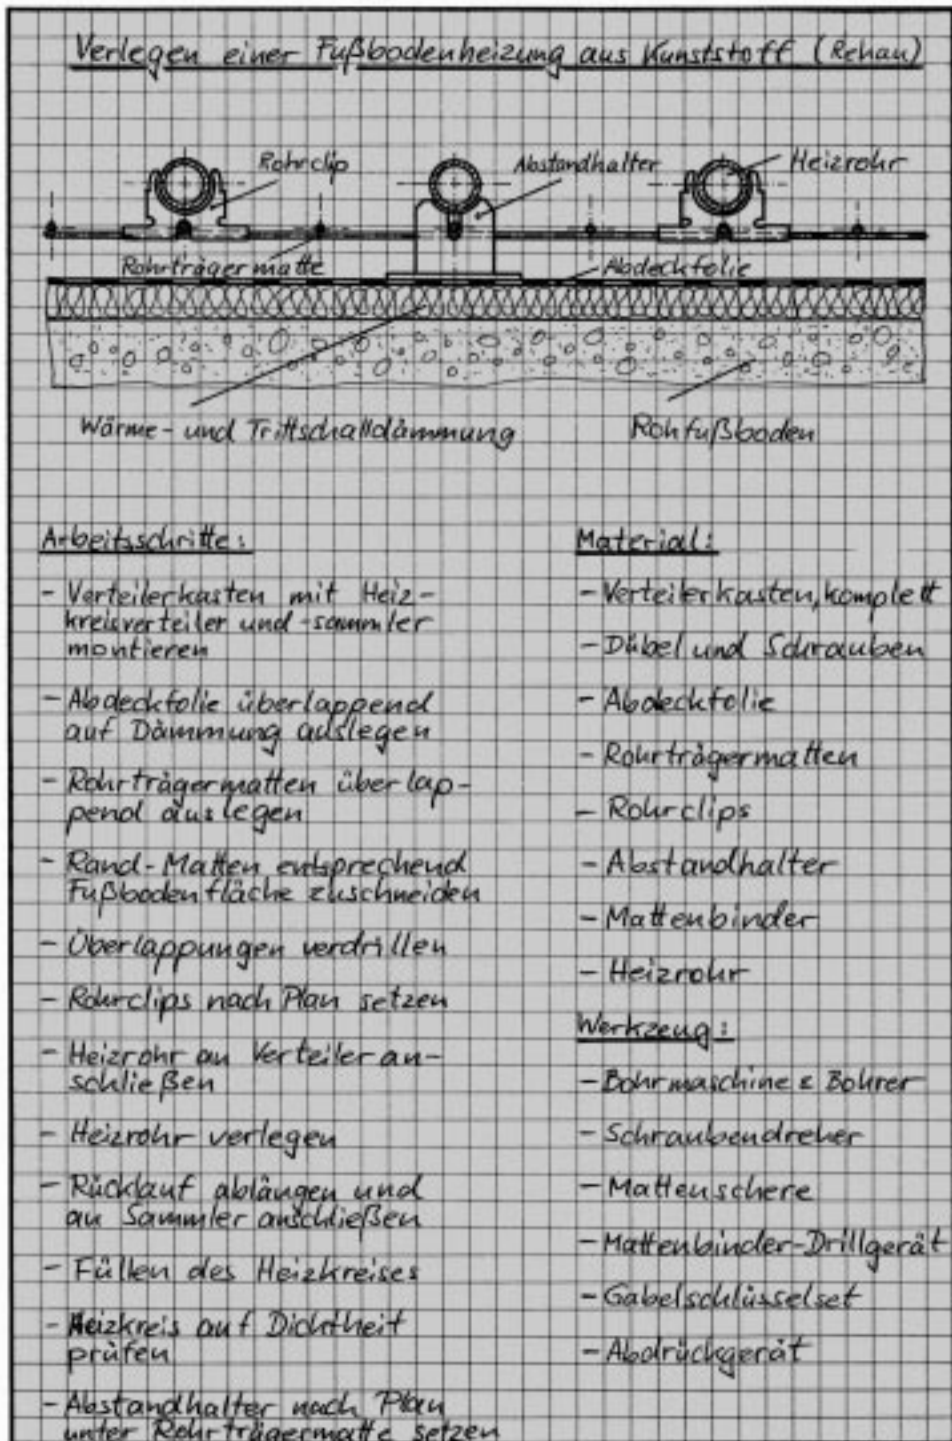 Verlegen einer Fußbodenheizung aus Kunststoff (Rehau)
Rohrclip
Abstandhalter
Heizrohr
Rohrträgermatte
Abdeckfolie
Wärme- und Trittschalldämmung
Rohfußboden
Arbeitsschritte:
- Verteilerkasten mit Heiz-
kreisverteiler und -sammler
montieren
- Abdeckfolie überlappend
auf Dämmung auslegen
- Rohrträgermatten überlap-
pend auslegen
- Rand-Matten entsprechend
Fußbodenfläche zuschneiden
- Überlappungen verdrillen
- Rohrclips nach Plan setzen
- Heizrohr an Verteiler an-
schließen
- Heizrohr verlegen
- Rücklauf ablängen und
an Sammler anschließen
- Füllen des Heizkreises
- Heizkreis auf Dichtheit
prüfen
- Abstandhalter nach Plan
unter Rohrträgermatte setzen
Material:
- Verteilerkasten, komplett
- Dübel und Schrauben
- Abdeckfolie
- Rohrträgermatten
- Rohrclips
- Abstandhalter
- Mattenbinder
- Heizrohr
Werkzeug:
- Bohrmaschine & Bohrer
- Schraubendreher
- Mattenschere
- Mattenbinder-Drillgerät
- Gabelschlüsselset
- Abdrückgerät